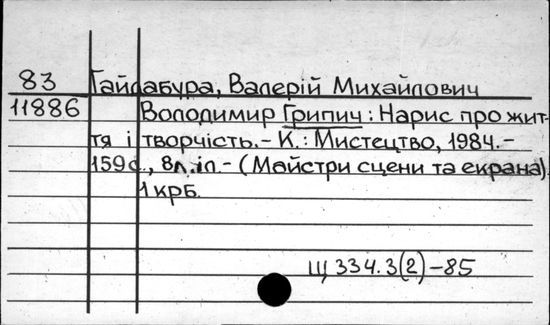 83 Гайдабура, Валерій Михайлович
11886 Володимир Грипич: Нарис про жит-
тя і творчість. – К.: Мистецтво, 1984. –
159с., 8л.іл. – (Майстри сцени та екрана).
1 крб.
Щ 334.3(2) – 85